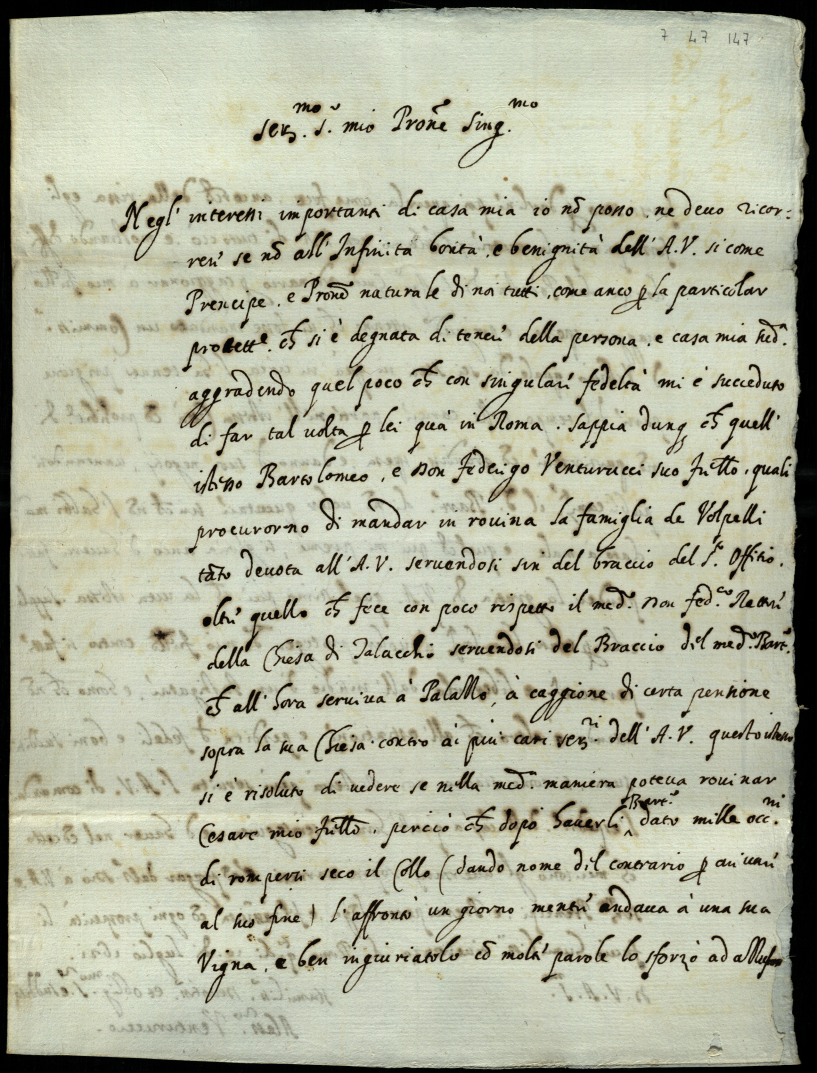 7 47 147
Ser.mo S.r mio Pron̄e Sing.mo
Negl' interessi importanti di casa mia io nō posso, ne devo ricor=
rerē se nō all' Infinita bontà, e benignità dell' A.V. si come
Prencipe, e Pronē naturale di noi tutti, come anco p la particolar
protett.e ch̄ si è degnata di tenerē della persona, e casa mia med.a
aggradendo quel poco ch̄ con singularē fedeltà mi è succeduto
di far tal volta p lei quà in Roma. Sappia dunq ch̄ quell'
istesso Bartolomeo, e Don Federigo Venturucci suo frēllo, quali
procurorno di mandar in rovina la famiglia de Volpelli
tāto devota all' A.V. servendosi sin del braccio del S.to Offitio,
oltrē quello ch̄ fece con poco rispetto il med.o Don Fed.co Rettorē
della Chiesa di Talacchio servendosi del Braccio del med.o Bart.o
ch̄ all' hora serviva à Palazzo, à caggione di certa pensione
sopra la sua Chiesa contro ai più cari ser.ri dell' A.V. questo istesso
si è risoluto di vedere se nella med.a maniera poteva rovinar
Cesare mio frēllo, perciò ch̄ dopò haverli Bart.o dato mille occ.ni
di rompersi seco il Collo (dando nome del contrario p arrivarē
al suo fine) l'affrontò un giorno mentrē andava à una sua
Vigna, e ben ingiuriatolo cō moltē parole lo sforzò ad